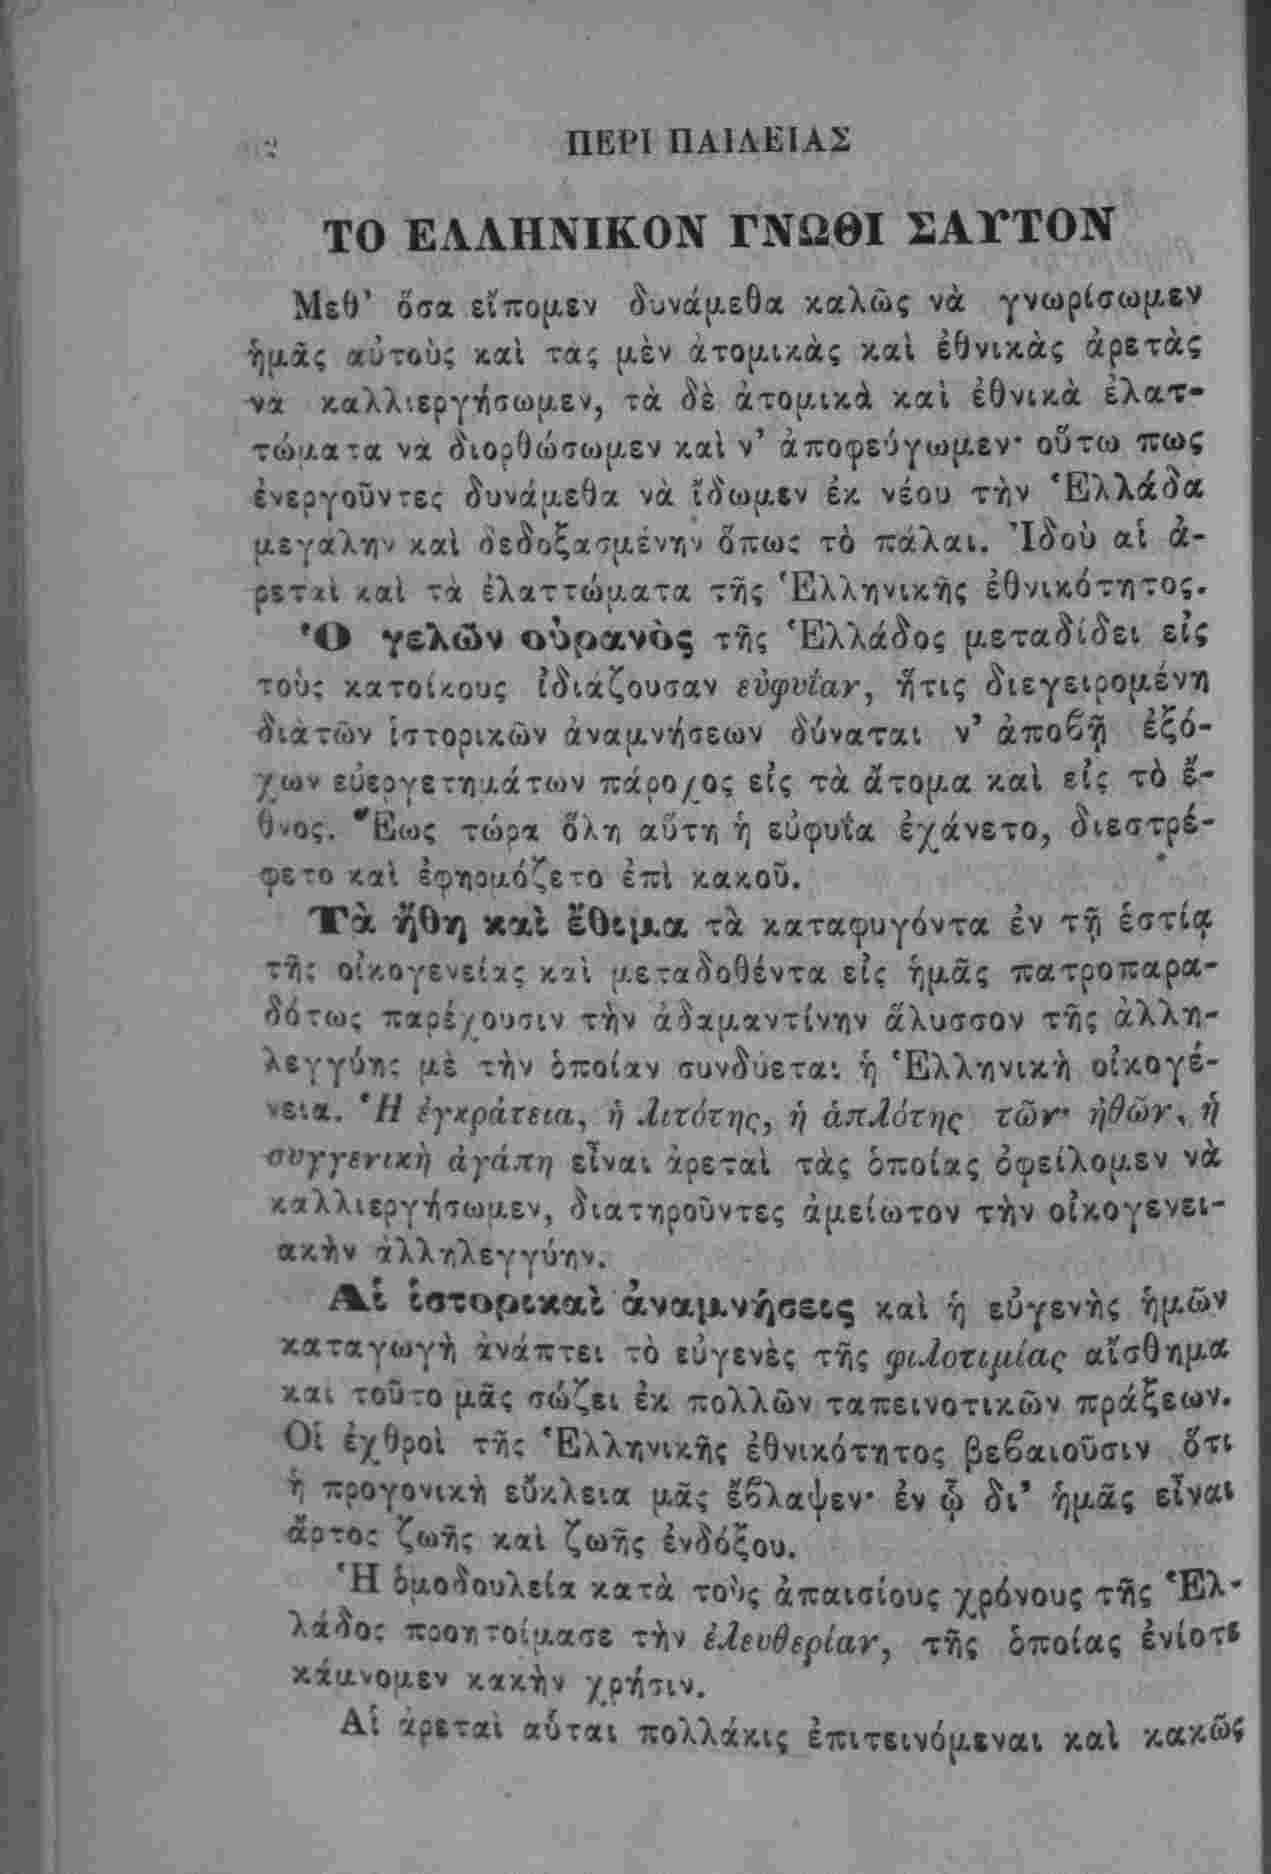 2 ΠΕΡΙ ΠΑΙΔΕΙΑΣ
ΤΟ ΕΛΛΗΝΙΚΟΝ ΓΝΩΘΙ ΣΑΥΤΟΝ
Μεθ’ ὅσα εἴπομεν δυνάμεθα καλῶς νὰ γνωρίσωμεν
ἡμᾶς αὐτοὺς καὶ τὰς μὲν ἀτομικὰς καὶ ἐθνικὰς ἀρετὰς
να καλλιεργήσωμεν, τὰ δὲ ἀτομικὰ καὶ ἐθνικὰ ἐλατ-
τώματα νὰ διορθώσωμεν καὶ ν’ ἀποφεύγωμεν· οὕτω πως
ἐνεργοῦντες δυνάμεθα νὰ ἴδωμεν ἐκ νέου τὴν Ἑλλάδα
μεγάλην καὶ δεδοξασμένην ὅπως τὸ πάλαι. Ἰδοὺ αἱ ἀ-
ρεταὶ καὶ τὰ ἐλαττώματα τῆς Ἑλληνικῆς ἐθνικότητος.
Ὁ γελῶν οὐρανὸς τῆς Ἑλλάδος μεταδίδει εἰς
τοὺς κατοίκους ἰδιάζουσαν εὐφυΐαν, ἥτις διεγειρομένη
διὰ τῶν ἱστορικῶν ἀναμνήσεων δύναται ν’ ἀποβῇ ἐξό-
χων εὐεργετημάτων πάροχος εἰς τὰ ἄτομα καὶ εἰς τὸ ἔ-
θνος. Ἕως τώρα ὅλη αὕτη ἡ εὐφυΐα ἐχάνετο, διεστρέ-
φετο καὶ ἐφηρμόζετο ἐπὶ κακοῦ.
Τὰ ἤθη καὶ ἔθιμα τὰ καταφυγόντα ἐν τῇ ἑστίᾳ
τῆς οἰκογενείας καὶ μεταδοθέντα εἰς ἡμᾶς πατροπαρα-
δότως παρέχουσιν τὴν ἀδαμαντίνην ἅλυσσον τῆς ἀλλη-
λεγγύης μὲ τὴν ὁποίαν συνδύεται ἡ Ἑλληνικὴ οἰκογέ-
νεια. Ἡ ἐγκράτεια, ἡ λιτότης, ἡ ἁπλότης τῶν ἠθῶν, ἡ
συγγενικὴ ἀγάπη εἶναι ἀρεταὶ τὰς ὁποίας ὀφείλομεν νὰ
καλλιεργήσωμεν, διατηροῦντες ἀμείωτον τὴν οἰκογενει-
ακὴν ἀλληλεγγύην.
Αἱ ἱστορικαὶ ἀναμνήσεις καὶ ἡ εὐγενὴς ἡμῶν
καταγωγὴ ἀνάπτει τὸ εὐγενὲς τῆς φιλοτιμίας αἴσθημα
και τοῦτο μᾶς σώζει ἐκ πολλῶν ταπεινοτικῶν πράξεων.
Οἱ ἐχθροὶ τῆς Ἑλληνικῆς ἐθνικότητος βεβαιοῦσιν ὅτι
ἡ προγονικὴ εὔκλεια μᾶς ἔβλαψεν· ἐν ᾧ δι’ ἡμᾶς εἶναι
ἄρτος ζωῆς καὶ ζωῆς ἐνδόξου.
Ἡ ὁμοδουλεία κατὰ τοὺς ἀπαισίους χρόνους τῆς Ἑλ-
λάδος προητοίμασε τὴν ἐλευθερίαν, τῆς ὁποίας ἐνίοτε
κάμνομεν κακὴν χρήσιν.
Αἱ ἀρεταὶ αὗται πολλάκις ἐπιτεινόμεναι καὶ κακῶς